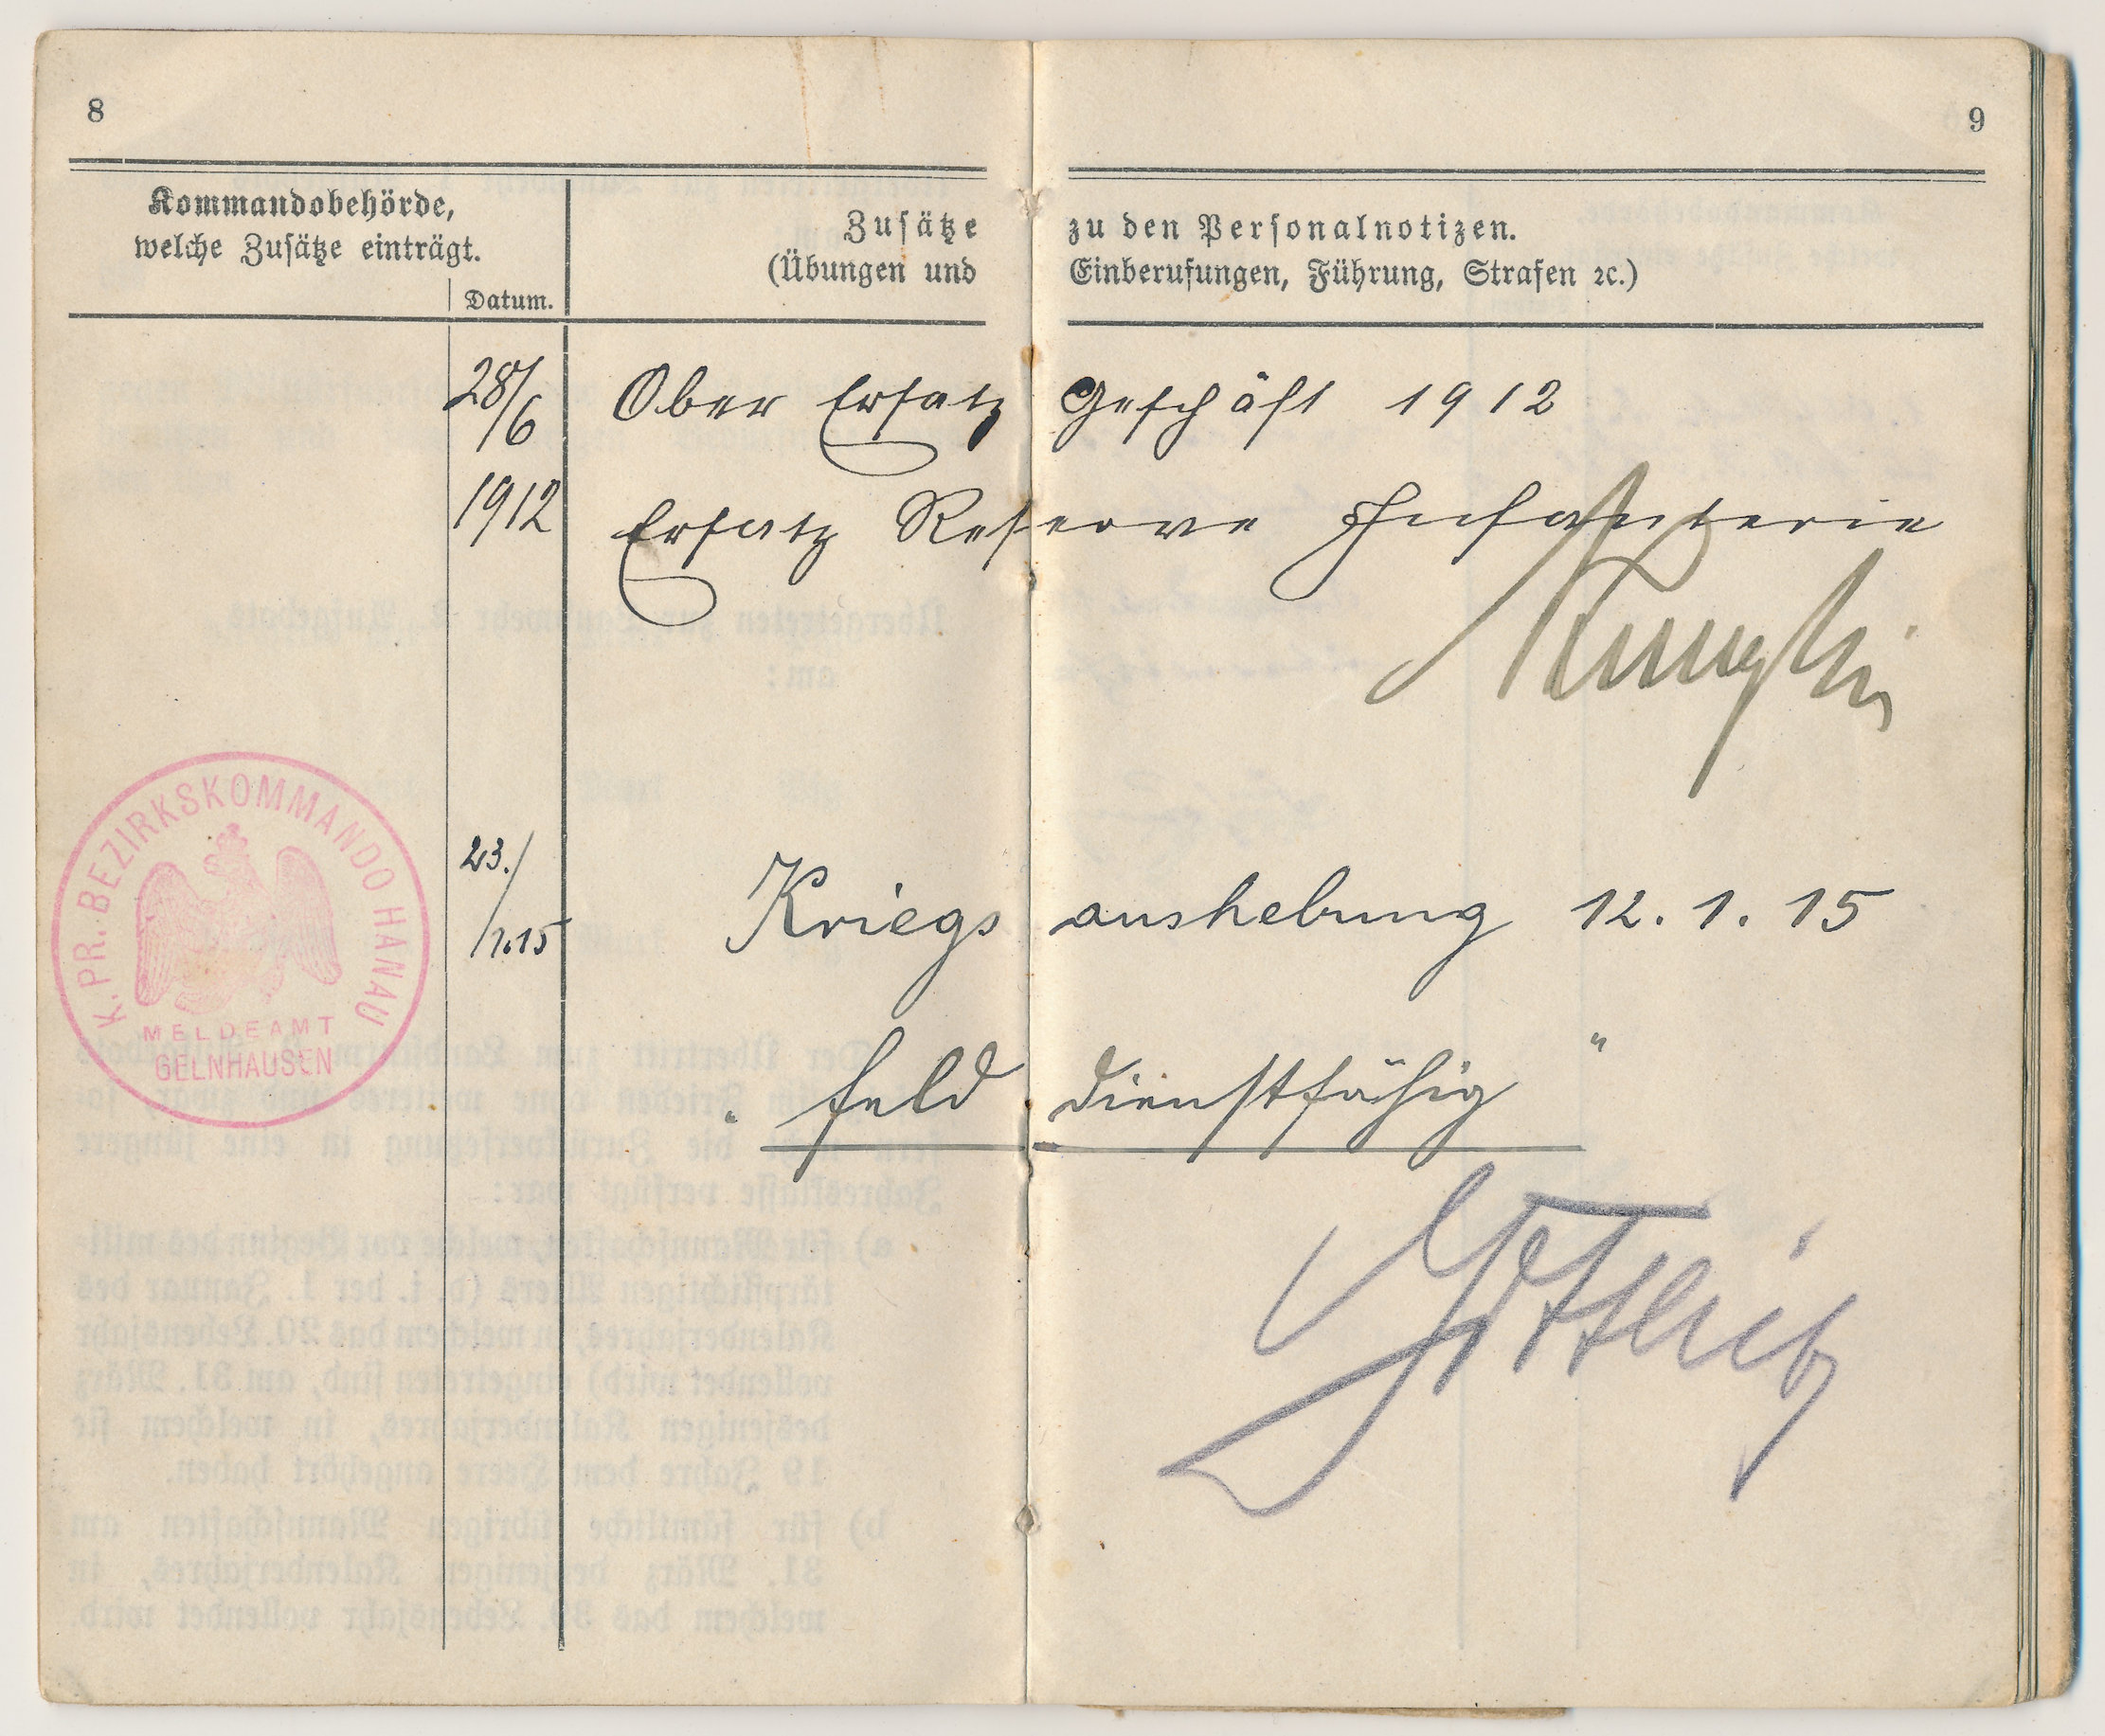 8
Kommandobehörde,
welche Zusätze einträgt.
Datum.
Zusätze zu den Personalnotizen.
(Übungen und Einberufungen, Führung, Strafen ꝛc.)
9
28/6 Ober Ersatz Geschäft 1912
1912 Ersatz Reserve Infanterie
K. PR. BEZIRKSKOMMANDO HANAU
MELDEAMT
GELNHAUSEN
23./1.15 Kriegsaushebung 12. 1. 15
"felddienstfähig"